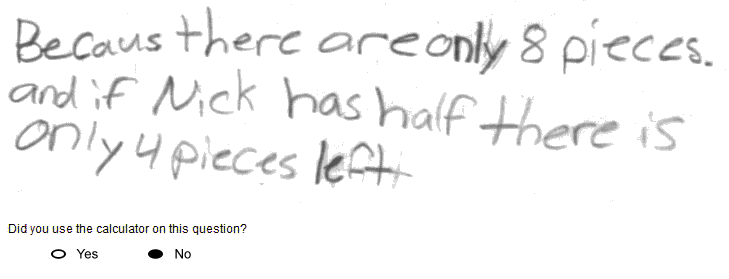 Becaus there are only 8 pieces.
and if Nick has half there is
only 4 pieces left
Did you use the calculator on this question?
Yes No